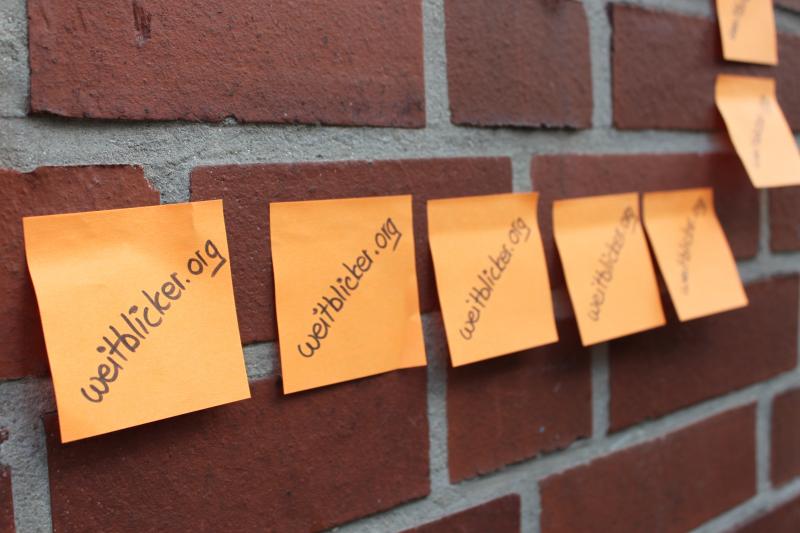 weitblicker.org
weitblicker.org
weitblicker.org
weitblicker.org
weitblicker.org